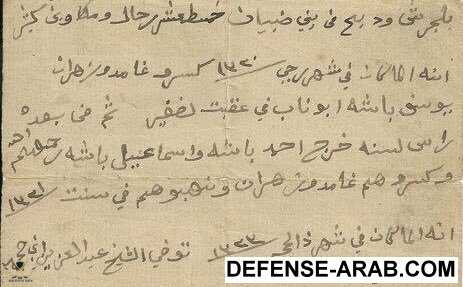 بلجرشي وذبح في بني ضبيان خمسطعشر رجال ومكاوين كثير
انه الماكان في شهر رجب ١٣٢٠ كسرو غامد وزهران
يوسف باشه ابوناب في عقبت لضفير ثم في بعده
راس لسنه خرج احمد باشه واسماعيل باشه
وكسرو هم غامد وزهران ونهبوهم في سنت ١٣٢١
انه الماكان في شهر ذالحجه ١٣٢٣ توفي الشيخ عبدالعزيز
DEFENSE-ARAB.COM